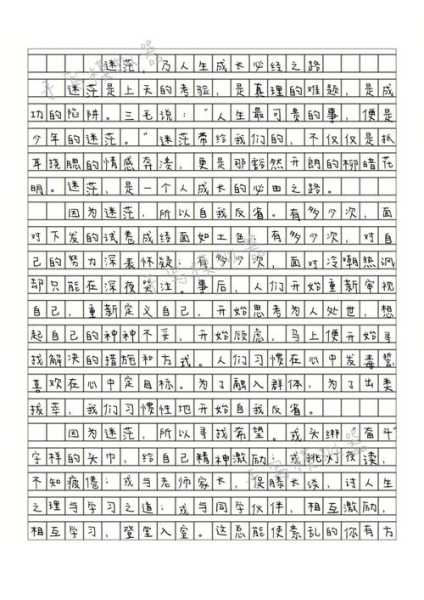 迷茫,乃人生成长必经之路
迷茫是上天的考验,是真理的难题,是成
功的陷阱。三毛说:“人生最可贵的事,便是
少年的迷茫。”迷茫带给我们的,不仅仅是抓
耳挠腮的情感奔溃,更是那豁然开朗的柳暗花
明。迷茫,是一个人成长的必由之路。
因为迷茫,所以自我反省。有多少次,面
对下发的试卷成绩面如土色;有多少次,对自
己的努力深表怀疑;有多少次,面对冷嘲热讽
却只能在深夜哭泣……事后,人们开始重新审视
自己,重新定义自己,开始思考为人处世,想
起自己的种种不妥,开始顾虑,马上便开始寻
找解决的措施和方式。人们习惯在心中发毒誓
喜欢在心中定目标。为了融入群体,为了出类
拔萃,我们习惯性地开始自我反省。
因为迷茫,所以寻找希望。或头绑“奋斗”
字样的头巾,给自己精神激励;或挑灯夜读,
不知疲倦;或与老师家长,促膝长谈,讨人生
之理与学习之道;或与同学伙伴,相互激励,
相互学习,登堂入室。这总能使紊乱的你有方